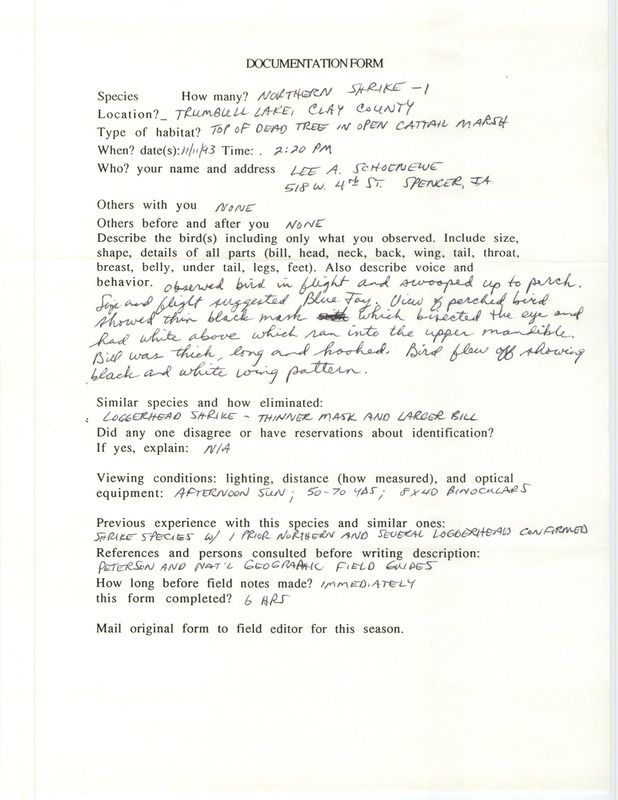 DOCUMENTATION FORM
Species How many? NORTHERN SHRIKE - 1
Location?_ TRUMBULL LAKE, CLAY COUNTY
Type of habitat? TOP OF DEAD TREE IN OPEN CATTAIL MARSH
When? date(s): 11/11/93 Time: . 2:20 PM
Who? your name and address LEE A. SCHOENEWE
518 W. 4th ST. SPENCER, IA
Others with you NONE
Others before and after you NONE
Describe the bird(s) including only what you observed. Include size,
shape, details of all parts (bill, head, neck, back, wing, tail, throat,
breast, belly, under tail, legs, feet). Also describe voice and
behavior. observed bird in flight and swooped up to perch.
Size and flight suggested Blue Jay. View of perched bird
showed thin black mask which bisected the eye and
had white above which ran into the upper mandible.
Bill was thick, long and hooked. Bird flew off showing
black and white wing pattern.
Similar species and how eliminated:
LOGGERHEAD SHRIKE - THINNER MASK AND LARGER BILL
Did any one disagree or have reservations about identification?
If yes, explain: N/A
Viewing conditions: lighting, distance (how measured), and optical
equipment: AFTERNOON SUN; 50-70 YDS; 8X40 BINOCULARS
Previous experience with this species and similar ones:
SHRIKE SPECIES W/ 1 PRIOR NORTHERN AND SEVERAL LOGGERHEAD CONFIRMED
References and persons consulted before writing description:
PETERSON AND NAT'L GEOGRAPHIC FIELD GUIDES
How long before field notes made? IMMEDIATELY
this form completed? 6 HRS
Mail original form to field editor for this season.